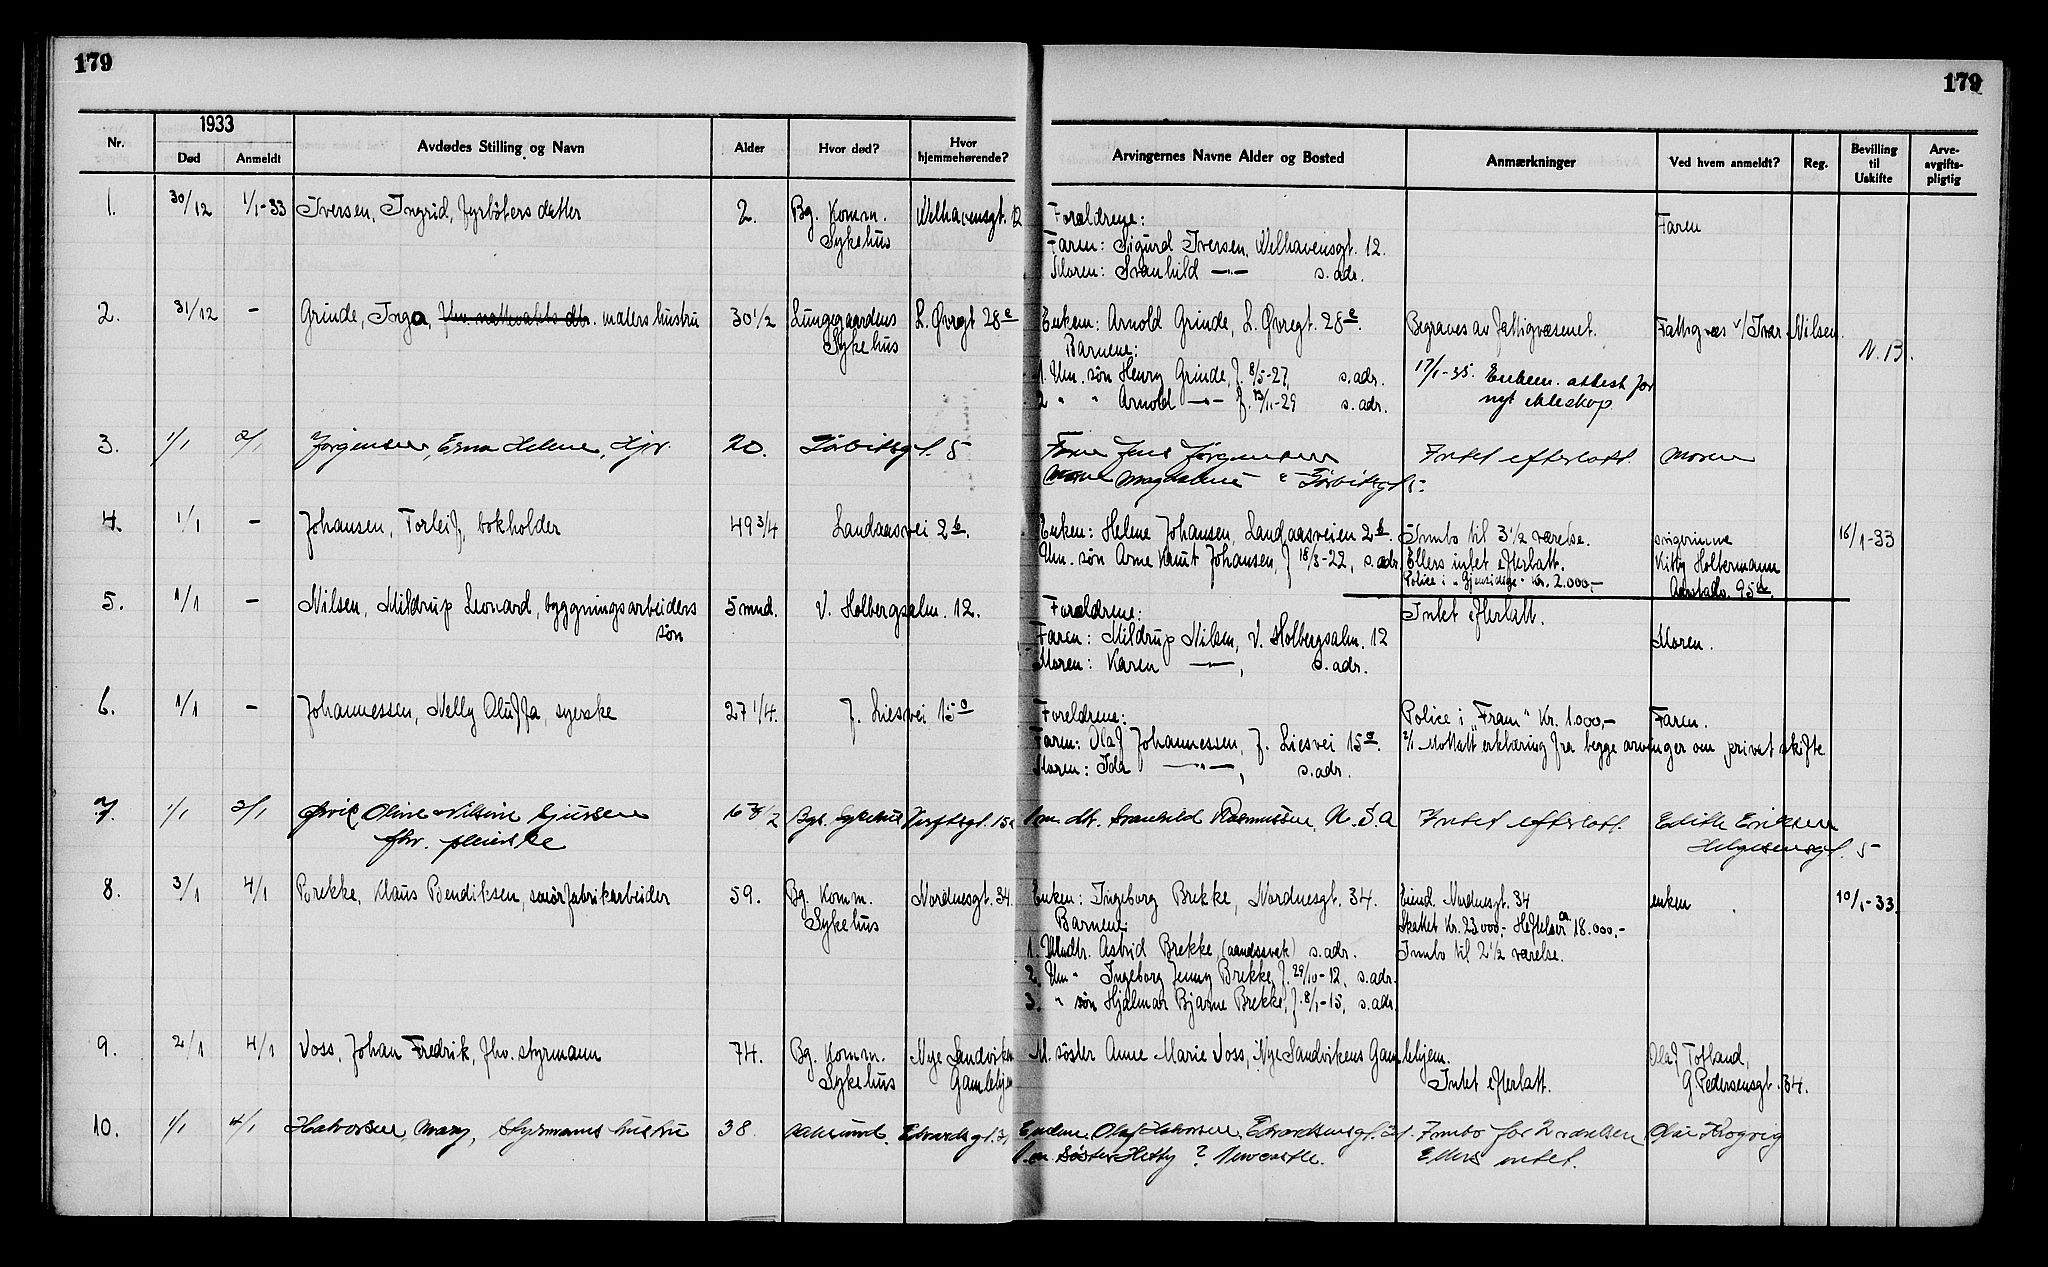 179
179
1933
Nr.
Død
Anmeldt
Avdødes Stilling og Navn
Alder
Hvor død?
Hvor hjemmehørende?
Arvingernes Navne Alder og Bosted
Anmærkninger
Ved hvem anmeldt?
Reg.
Bevilling til Uskifte
Arve-avgifts-pligtig
1. 30/12 1/1-33 Iversen, Ingrid, fyrbøters datter 2. Bg. Komm. Welhavensgt. 12 Foreldrene: Faren
Sykehus Faren: Sigurd Iversen, Welhavensgt. 12.
Moren: Svanhild —"— s. adr.
2. 31/12 - Grinde, Inga, fhv. nattevakts dtr. malers hustru 30 1/2 Lungegaardens L. Øvregt 28e Enken: Arnold Grinde, L. Øvregt. 28e. Begraves av fattigvæsenet. Fattigvæs v/ Ivar Nilsen.
Sykehus Barnene: N.B.
1. Um. søn Henry Grinde, f. 8/5-27, s. adr. 17/1-35. Enkem. attest for
2 " " Arnold —"— f. 13/11-29 s. adr. nyt ekteskap
3. 1/1 2/1 Jørgensen, Erna Helene, Hjv. 20. 5 Faren Jens Jørgensen Intet efterlatt. Moren
Moren Magdalene " 5.
4. 1/1 - Johansen, Torleif, bokholder 49 3/4 Landaasvei 2b. Enken: Helene Johansen, Landaasveien 2b. Innbo til 3 1/2 værelse. svigerinne 16/1-33
Um. søn Arne Knut Johansen, f 18/8-22, s. adr. Ellers intet efterlatt. Kitty Holtermann
Police i "Gjensidige" Kr. 2.000,- Aarstadv. 95a.
5. 1/1 - Nilsen, Mildrup Leonard, byggningsarbeiders 5 mnd. V. Holbergsalm. 12. Foreldrene: Intet efterlatt.
søn Faren: Mildrup Nilsen, V. Holbergsalm. 12 Moren.
Moren: Karen —"—, s. adr.
6. 1/1 - Johannessen, Nelly Oluffa syerske 27 1/4. J. Liesvei 15a Foreldrene: Police i "Fram" Kr. 1.000,- Faren.
Faren: Olaf Johannessen, J. Liesvei 15a. 2/1 Mottatt erklæring fra begge arvinger om privat skifte
Moren: Ida —"—, s. adr.
7. 1/1 3/1 Olive Nilsine 67 1/2 Bgs. Sykehus Verftsgt. 15a dtr. Svanhild Rasmussen, U.S.A Intet efterlatt. Edith Eriksen
fhv. pleierske Helgesensgt. 5
8. 3/1 4/1 Brekke, Klaus Bendiksen, smørfabrikarbeider 59. Bg. Komm. Nordnesgt. 34. Enken: Ingeborg Brekke, Nordnesgt. 34. Eiend. Nordnesgt. 34 enken 10/1-33.
Sykehus Barnene: Skattet Kr. 23000,- Heftelser ca 18.000,-
1. Mndtr. Astrid Brekke, (aandssvak) s. adr. Innbo til 2 1/2 værelse.
2. Um " Ingeborg Jenny Brekke, f. 29/10-12, s. adr.
3. " søn Hjalmar Bjarne Brekke, f. 8/1-15, s. adr.
9. 2/1 4/1 Voss, Johan Fredrik, fhv. styrmann 74. Bg. Komm. Nye Sandvikens M. søster Anne Marie Voss, Nye Sandvikens Gamlehjem. Olaf Tofland,
Sykehus Gamlehjem Intet efterlatt. G. Pedersensgt. 34.
10. 1/1 4/1 Halvorsen, Mary, Styrmanns hustru 38. Enkem. Olaf Halvorsen, Edvardsensgt. Innbo for 2 værelser Olai Krogvig
søster Hetty ? Newcastle. Ellers intet.